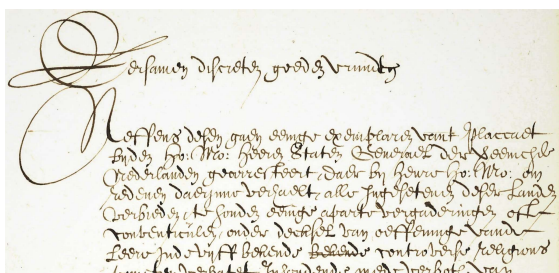 Eersamen discreten goeden vrunden
Neffens desen gaen eenige exemplaren vant placcaet
byden Ho: Mo: Heeren Staten Generael der Vereenichde
Nederlanden gearresteert, daer by heure Ho: Mo: om
redenen daerinne verhaelt, alle Ingesetenen deser Landen
verbieden te houden eenige aparte vergaderingen ofte
conventiculen, onder decksel van oeffeninge vande
Leere inde vyff bekende bekende controverse religions